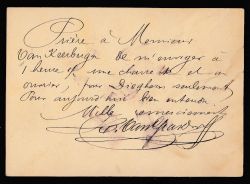 Prière à Monsieur
Van Keerbergh de m'envoyer à
1 heure une charrette et
ouvrier, pour Dieghem seulement
Pour aujourd'hui bien entendu.
Mille remerciements